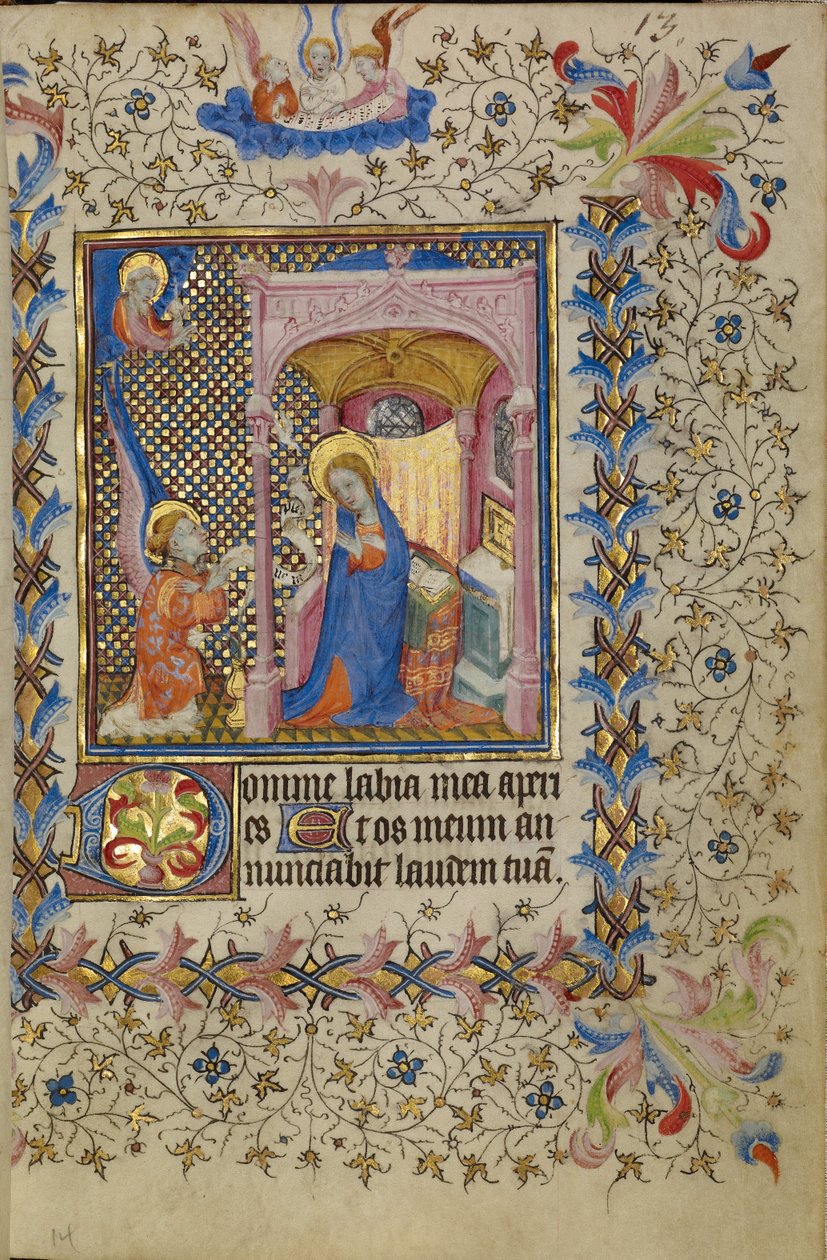 13.
Domine labia mea aperi
es Et os meum an
nunciabit laudem tuā.
14